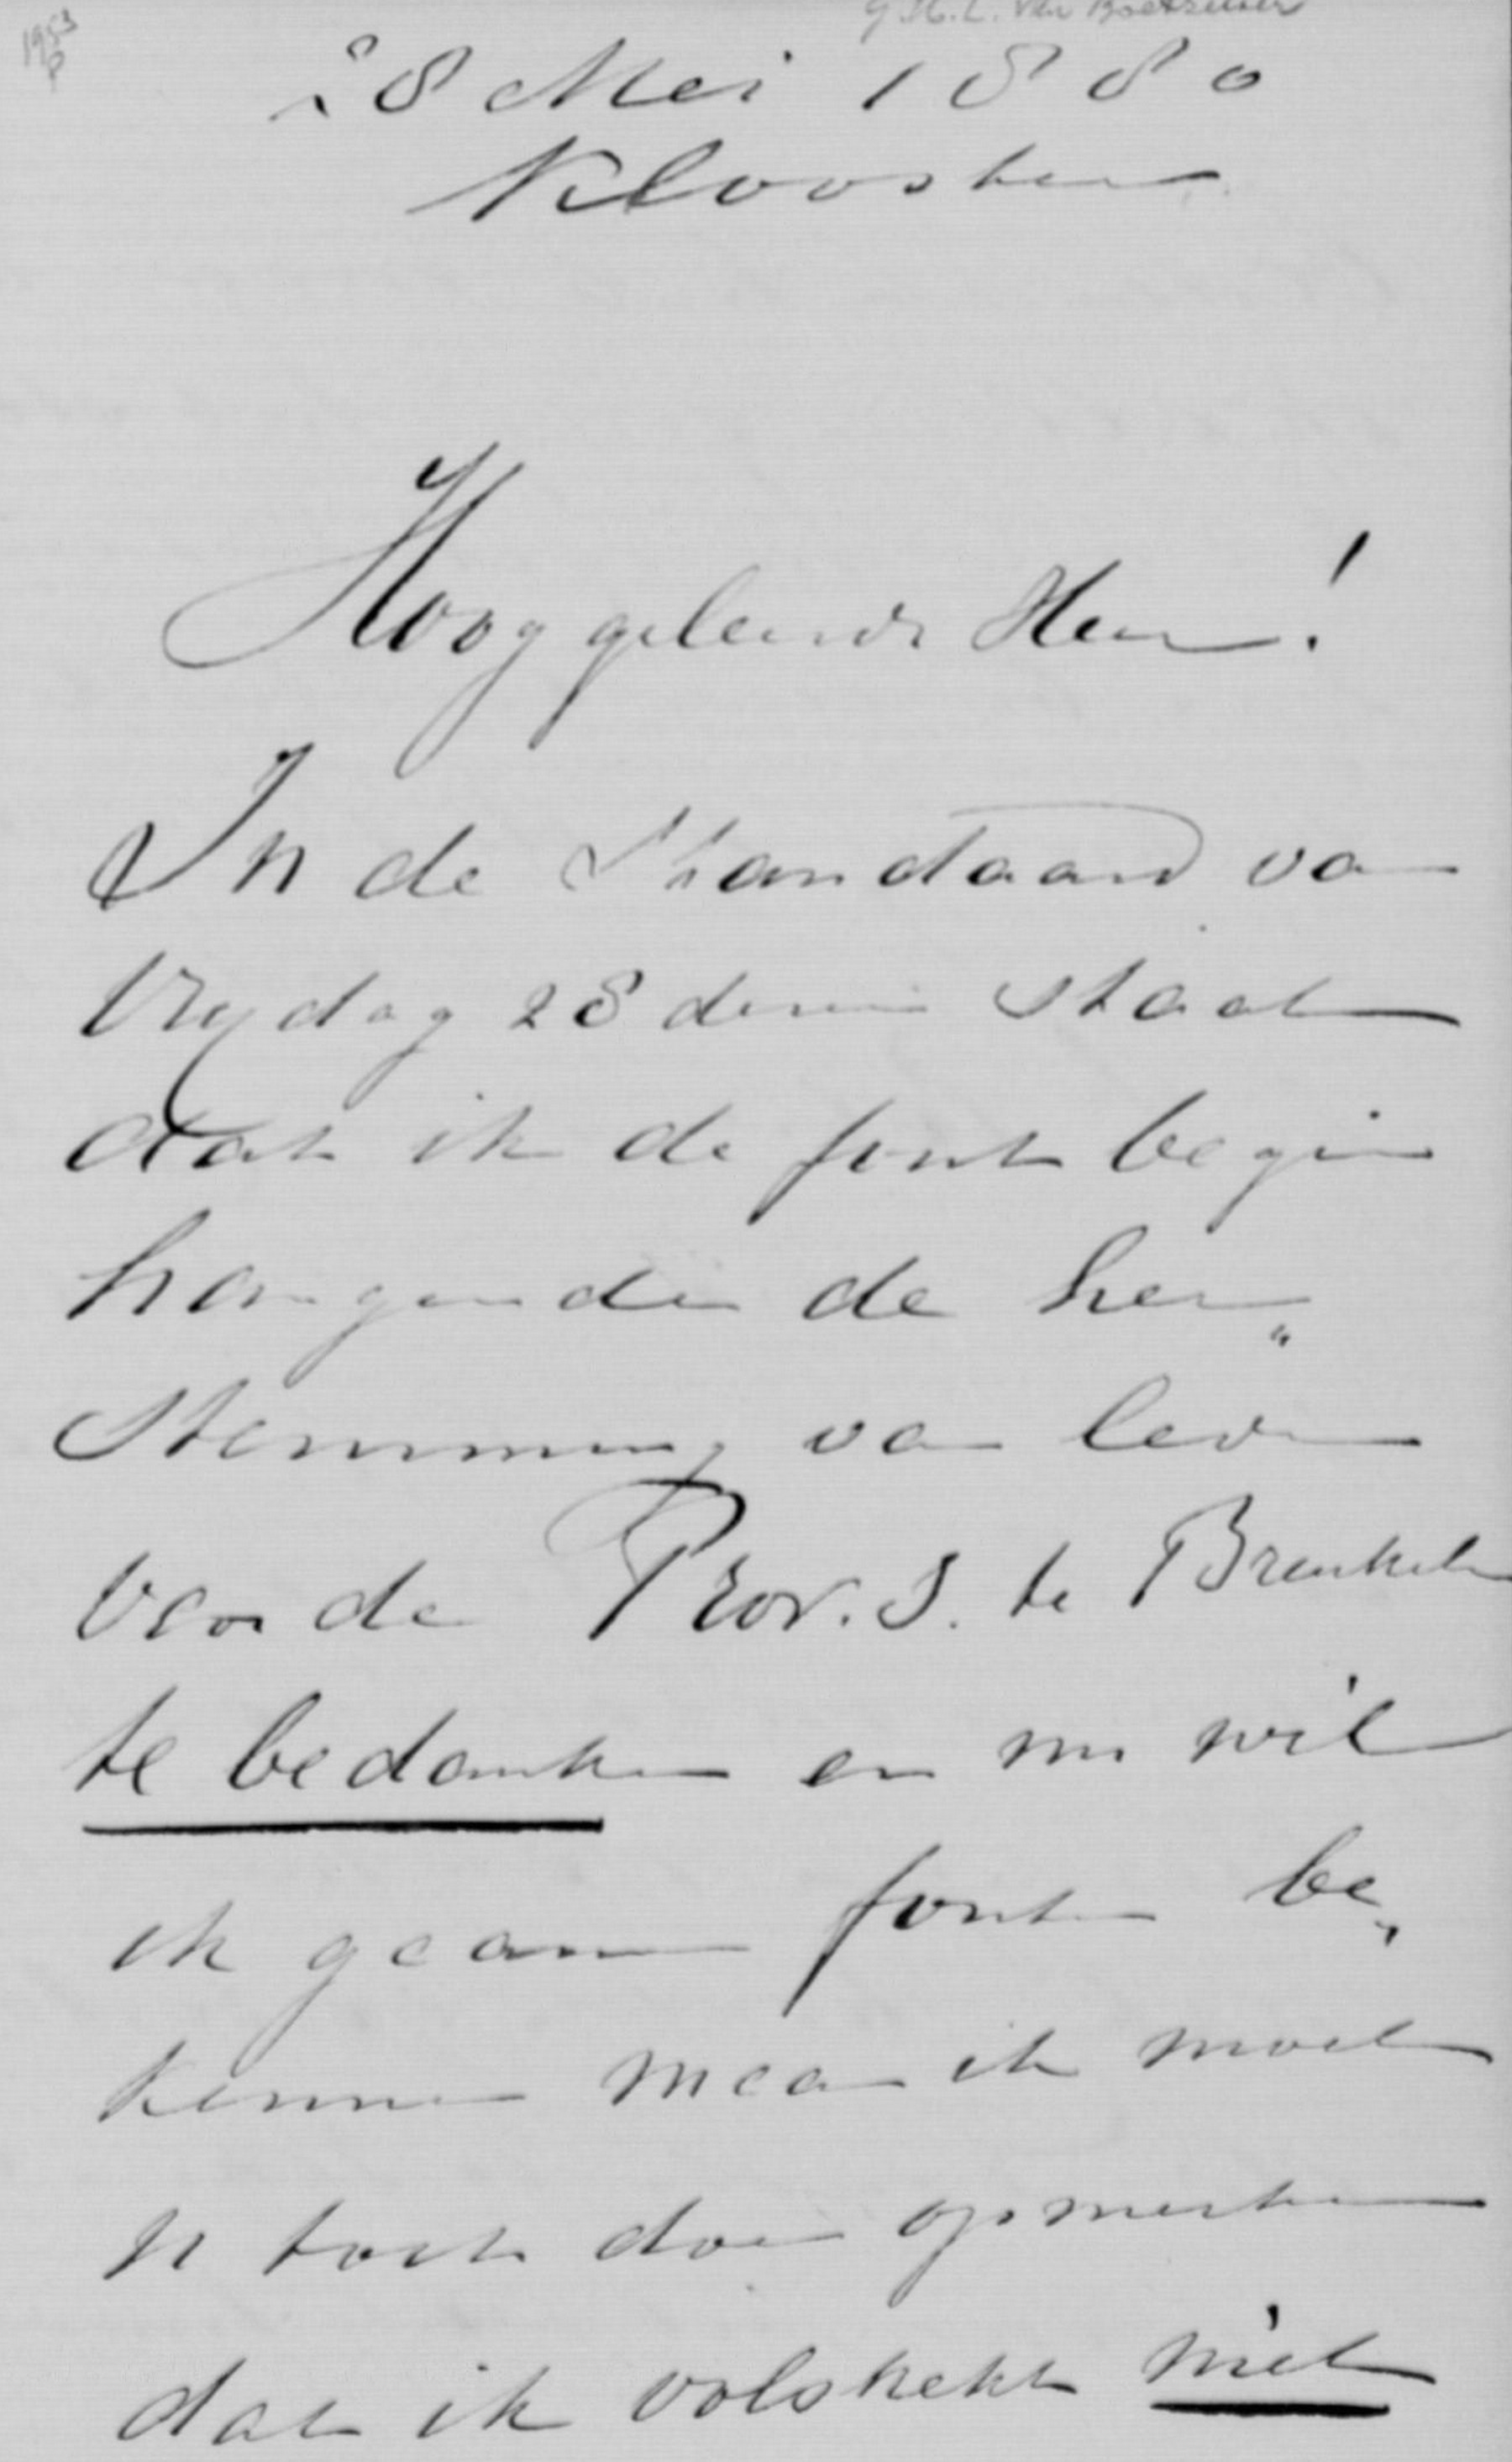 1953
P
G.H.L. van Boetzelaer
28 Mei 1880
Klooster
Hooggeleerde Heer!
In de Standaard van
Vrijdag 28 dezer staat
dat ik de fout begin
hangende de her„
stemming van leden
voor de Prov. S. te Breukelen
te bedanken en nu wil
ik gaarne fouten be„
kennen maar ik moet
U toch doen opmerken
dat ik volstrekt niet